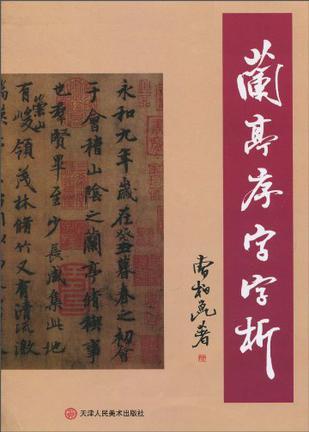 蘭亭序字字析
著
永和九年歲在癸丑暮春之初會
于會稽山陰之蘭亭脩稧事
也羣賢畢至少長咸集此地
有崇山峻領茂林脩竹又有清流激
天津人民美术出版社